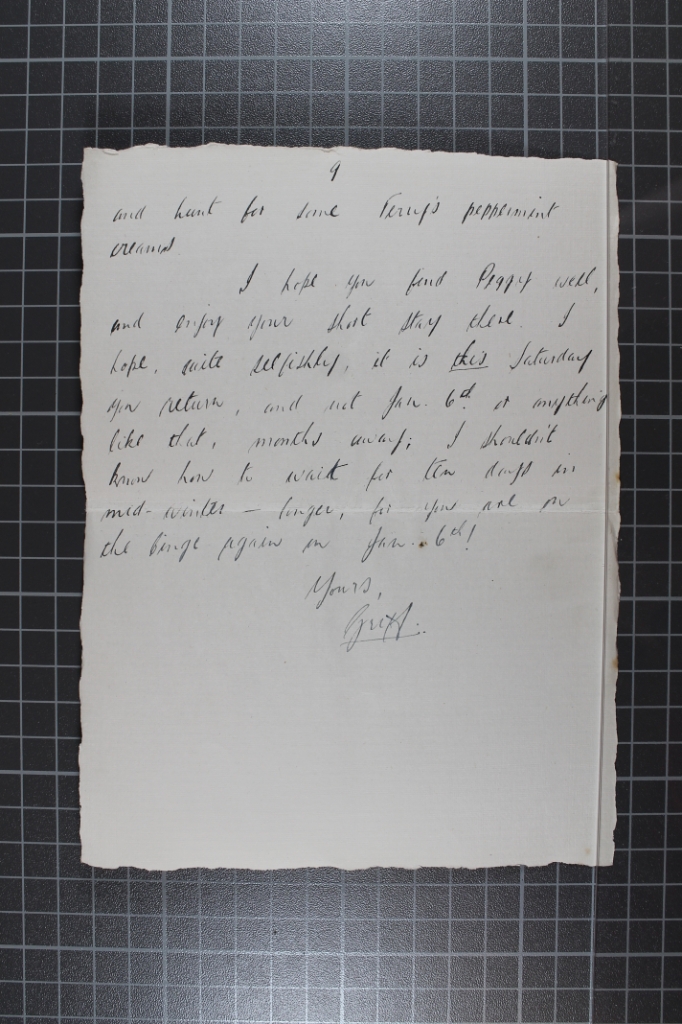 9
and hunt for some Terry's peppermint
creams.
I hope you find Peggy well,
and enjoy your short stay there. I
hope, quite selfishly, it is this Saturday
you return, and not Jan. 6th. or anything
like that, months away; I shouldn't
know how to wait for ten days in
mid-winter – longer, for you are on
the binge again on Jan. 6th!
Yours,
Griff.